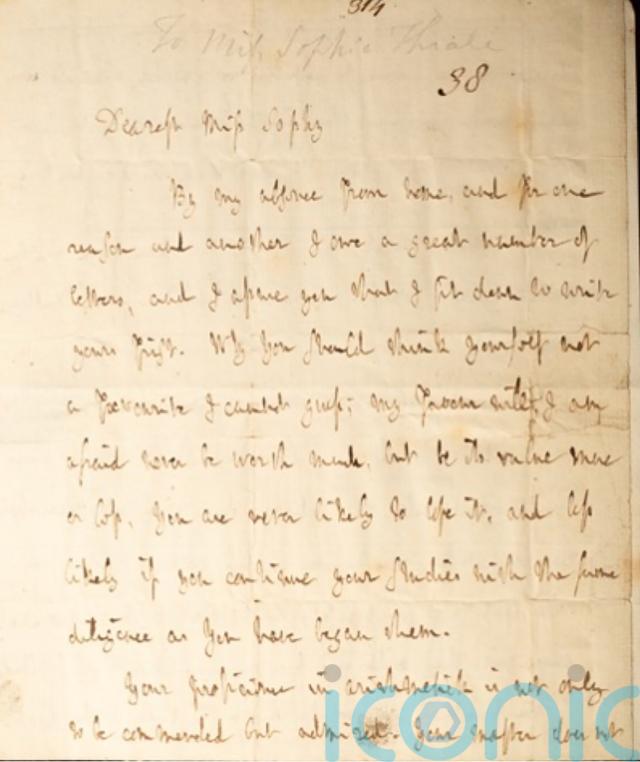 314
To Miss Sophia Thrale
38
Dearest Miss Sophy
By my absence from home, and for one
reason and another I owe a great number of
letters, and I assure you that I sit down to write
yours first. Why you should think yourself not
a favourite I cannot guess; my favour will, I am
afraid never be worth much, but be its value more
or less, you are never likely to lose it, and less
likely if you continue your studies with the same
diligence as you have began them.
Your proficience in arithmetick is not only
to be commended but admired. Your master does not
iconic